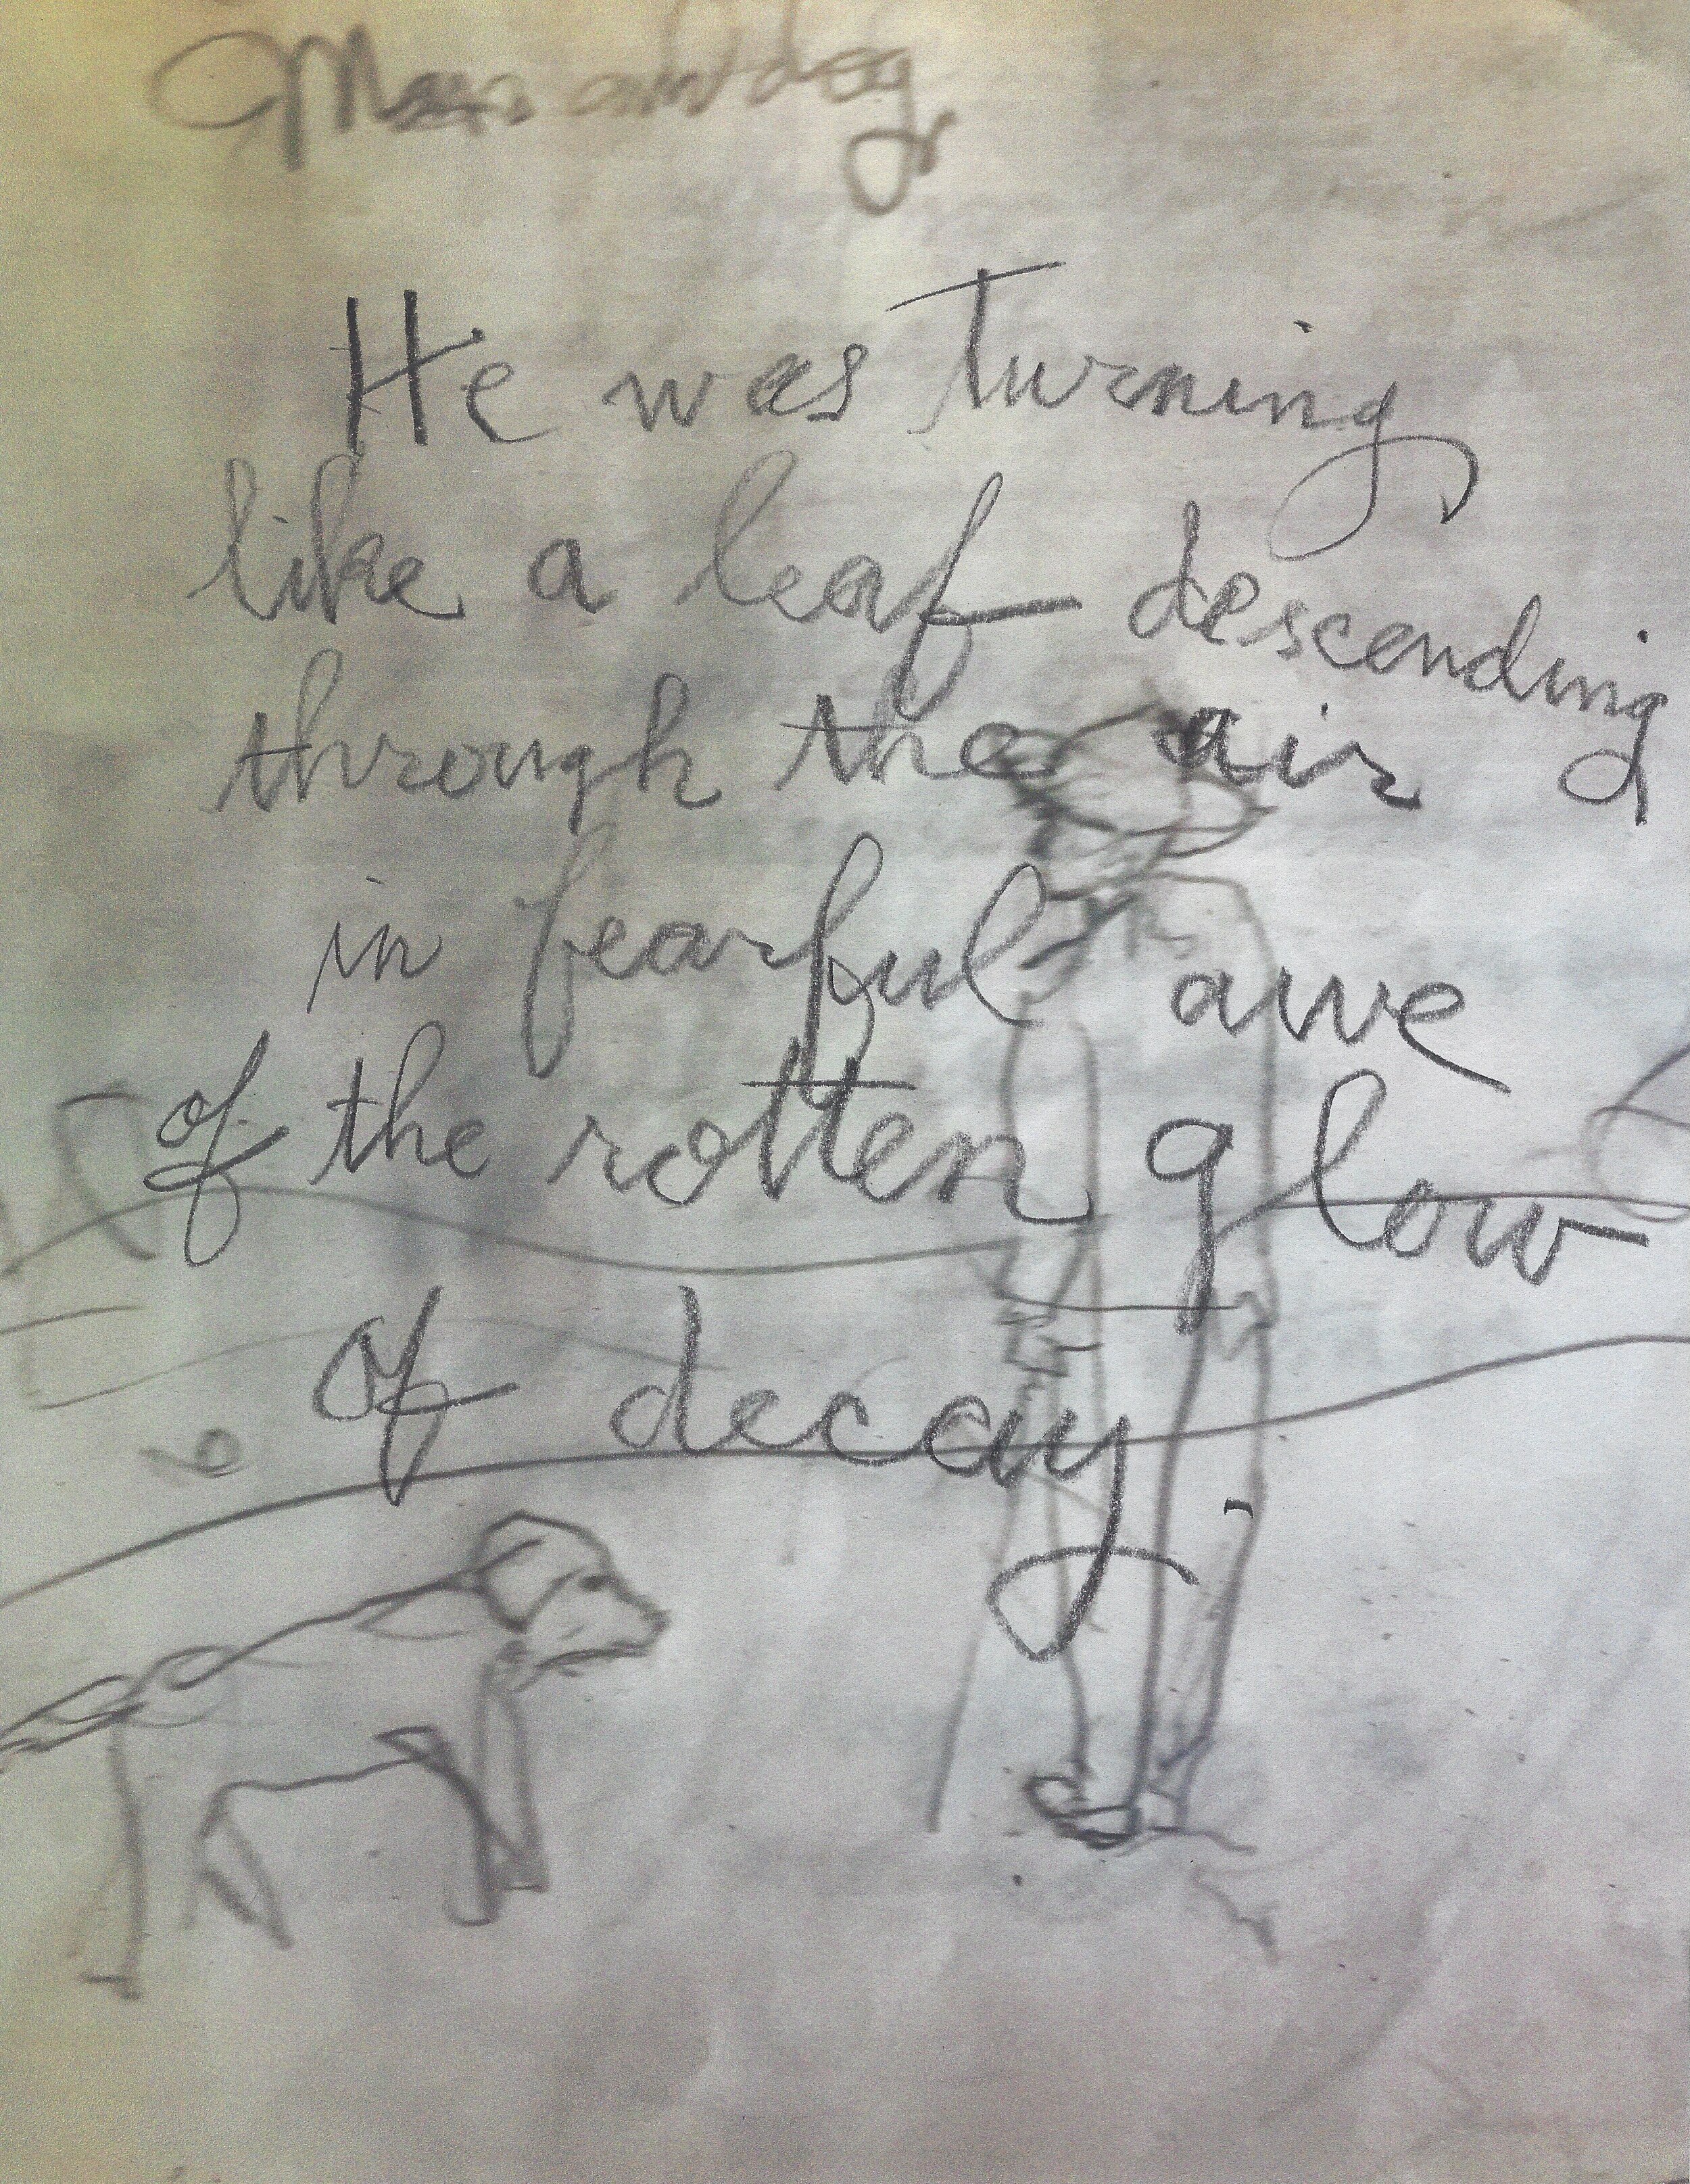 Man and dog
He was turning
like a leaf descending
through the air
in fearful awe
of the rotten glow
of decay.